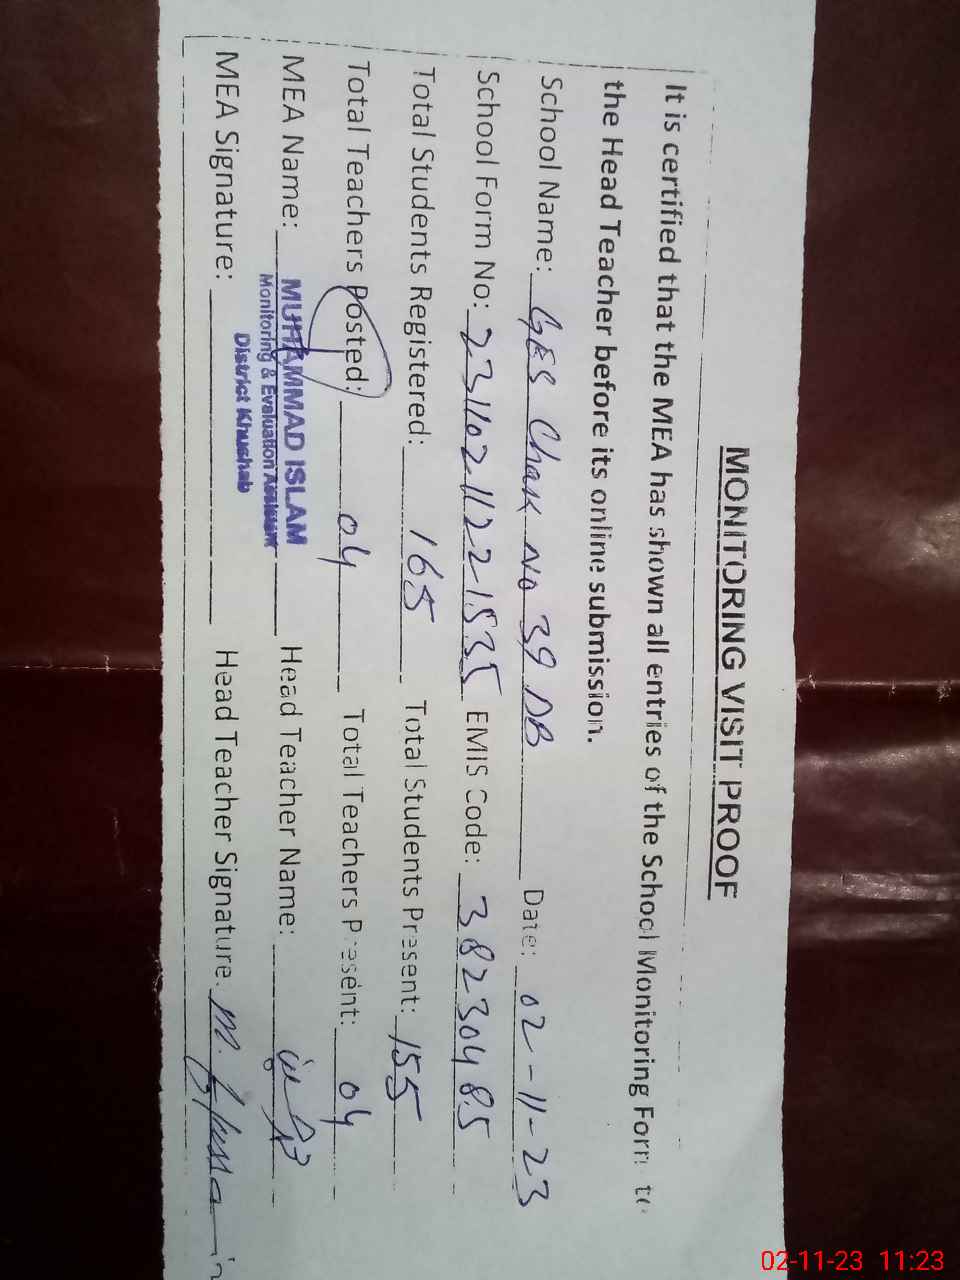 MONITORING VISIT PROOF
It is certified that the MEA has shown all entries of the School Monitoring Form to
the Head Teacher before its online submission.
School Name: GES Chak No 39 DB Date: 02-11-23
School Form No: 23110211221535 EMIS Code: 38230485
Total Students Registered: 165 Total Students Present: 155
Total Teachers Posted: 04 Total Teachers Present: 04
MEA Name: MUHAMMAD ISLAM Head Teacher Name:
Monitoring & Evaluation Assistant
District Khushab
MEA Signature: Head Teacher Signature. M.
02-11-23 11:23